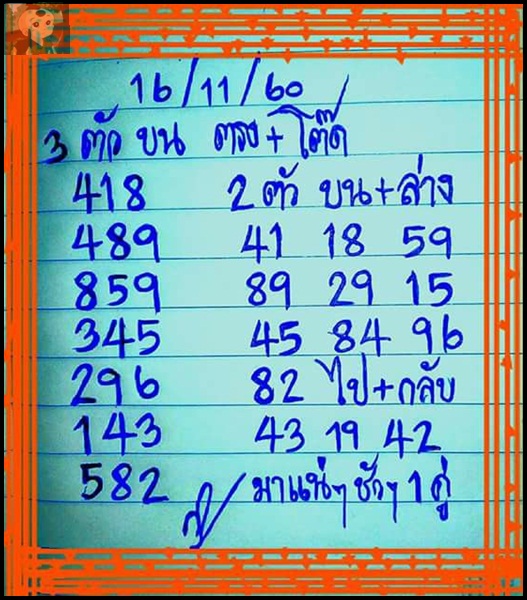 16/11/60
3 ตัว บน ตรง+โต๊ด
418 2 ตัว บน+ล่าง
489 41 18 59
859 89 29 15
345 45 84 96
296 82 ไป+กลับ
143 43 19 42
582 มาแน่ๆ ชัวๆ 1 คู่